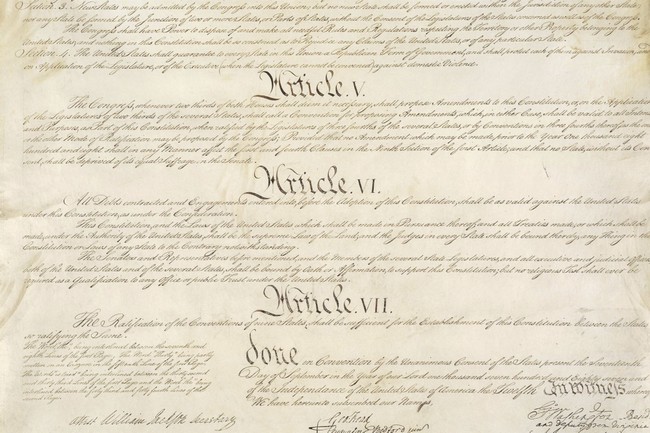 Section 3. New States may be admitted by the Congress into this Union; but no new State shall be formed or erected within the Jurisdiction of any other State;
nor any State be formed by the Junction of two or more States, or Parts of States, without the Consent of the Legislatures of the States concerned as well as of the Congress.
The Congress shall have Power to dispose of and make all needful Rules and Regulations respecting the Territory or other Property belonging to the
United States; and nothing in this Constitution shall be so construed as to Prejudice any Claims of the United States, or of any particular State.
Section. 4. The United States shall guarantee to every State in this Union a Republican Form of Government, and shall protect each of them against Invasion; and
on Application of the Legislature, or of the Executive (when the Legislature cannot be convened) against domestic Violence.
Article. V.
The Congress, whenever two thirds of both Houses shall deem it necessary, shall propose Amendments to this Constitution, or, on the Application
of the Legislatures of two thirds of the several States, shall call a Convention for proposing Amendments, which, in either Case, shall be valid to all Intents
and Purposes, as Part of this Constitution, when ratified by the Legislatures of three fourths of the several States, or by Conventions in three fourths thereof, as the
other Mode of Ratification may be proposed by the Congress; Provided that no Amendment which may be made prior to the Year One thousand eight
hundred and eight shall in any Manner affect the first and fourth Clauses in the Ninth Section of the first Article; and that no State, without its Con
sent, shall be deprived of its equal Suffrage in the Senate.
Article. VI.
All Debts contracted and Engagements entered into, before the Adoption of this Constitution, shall be as valid against the United States
under this Constitution, as under the Confederation.
This Constitution, and the Laws of the United States which shall be made in Pursuance thereof; and all Treaties made, or which shall be
made, under the Authority of the United States, shall be the supreme Law of the Land; and the Judges in every State shall be bound thereby, any Thing in the
Constitution or Laws of any State to the Contrary notwithstanding.
The Senators and Representatives before mentioned, and the Members of the several State Legislatures, and all executive and judicial Officers,
both of the United States and of the several States, shall be bound by Oath or Affirmation, to support this Constitution; but no religious Test shall ever be
required as a Qualification to any Office or public Trust under the United States.
Article. VII.
The Ratification of the Conventions of nine States, shall be sufficient for the Establishment of this Constitution between the States
so ratifying the Same.
done in Convention by the Unanimous Consent of the States present the Seventeenth
Day of September in the Year of our Lord one thousand seven hundred and Eighty seven and
of the Independance of the United States of America the Twelfth In witness
We have hereunto subscribed our Names,
Attest William Jackson Secretary